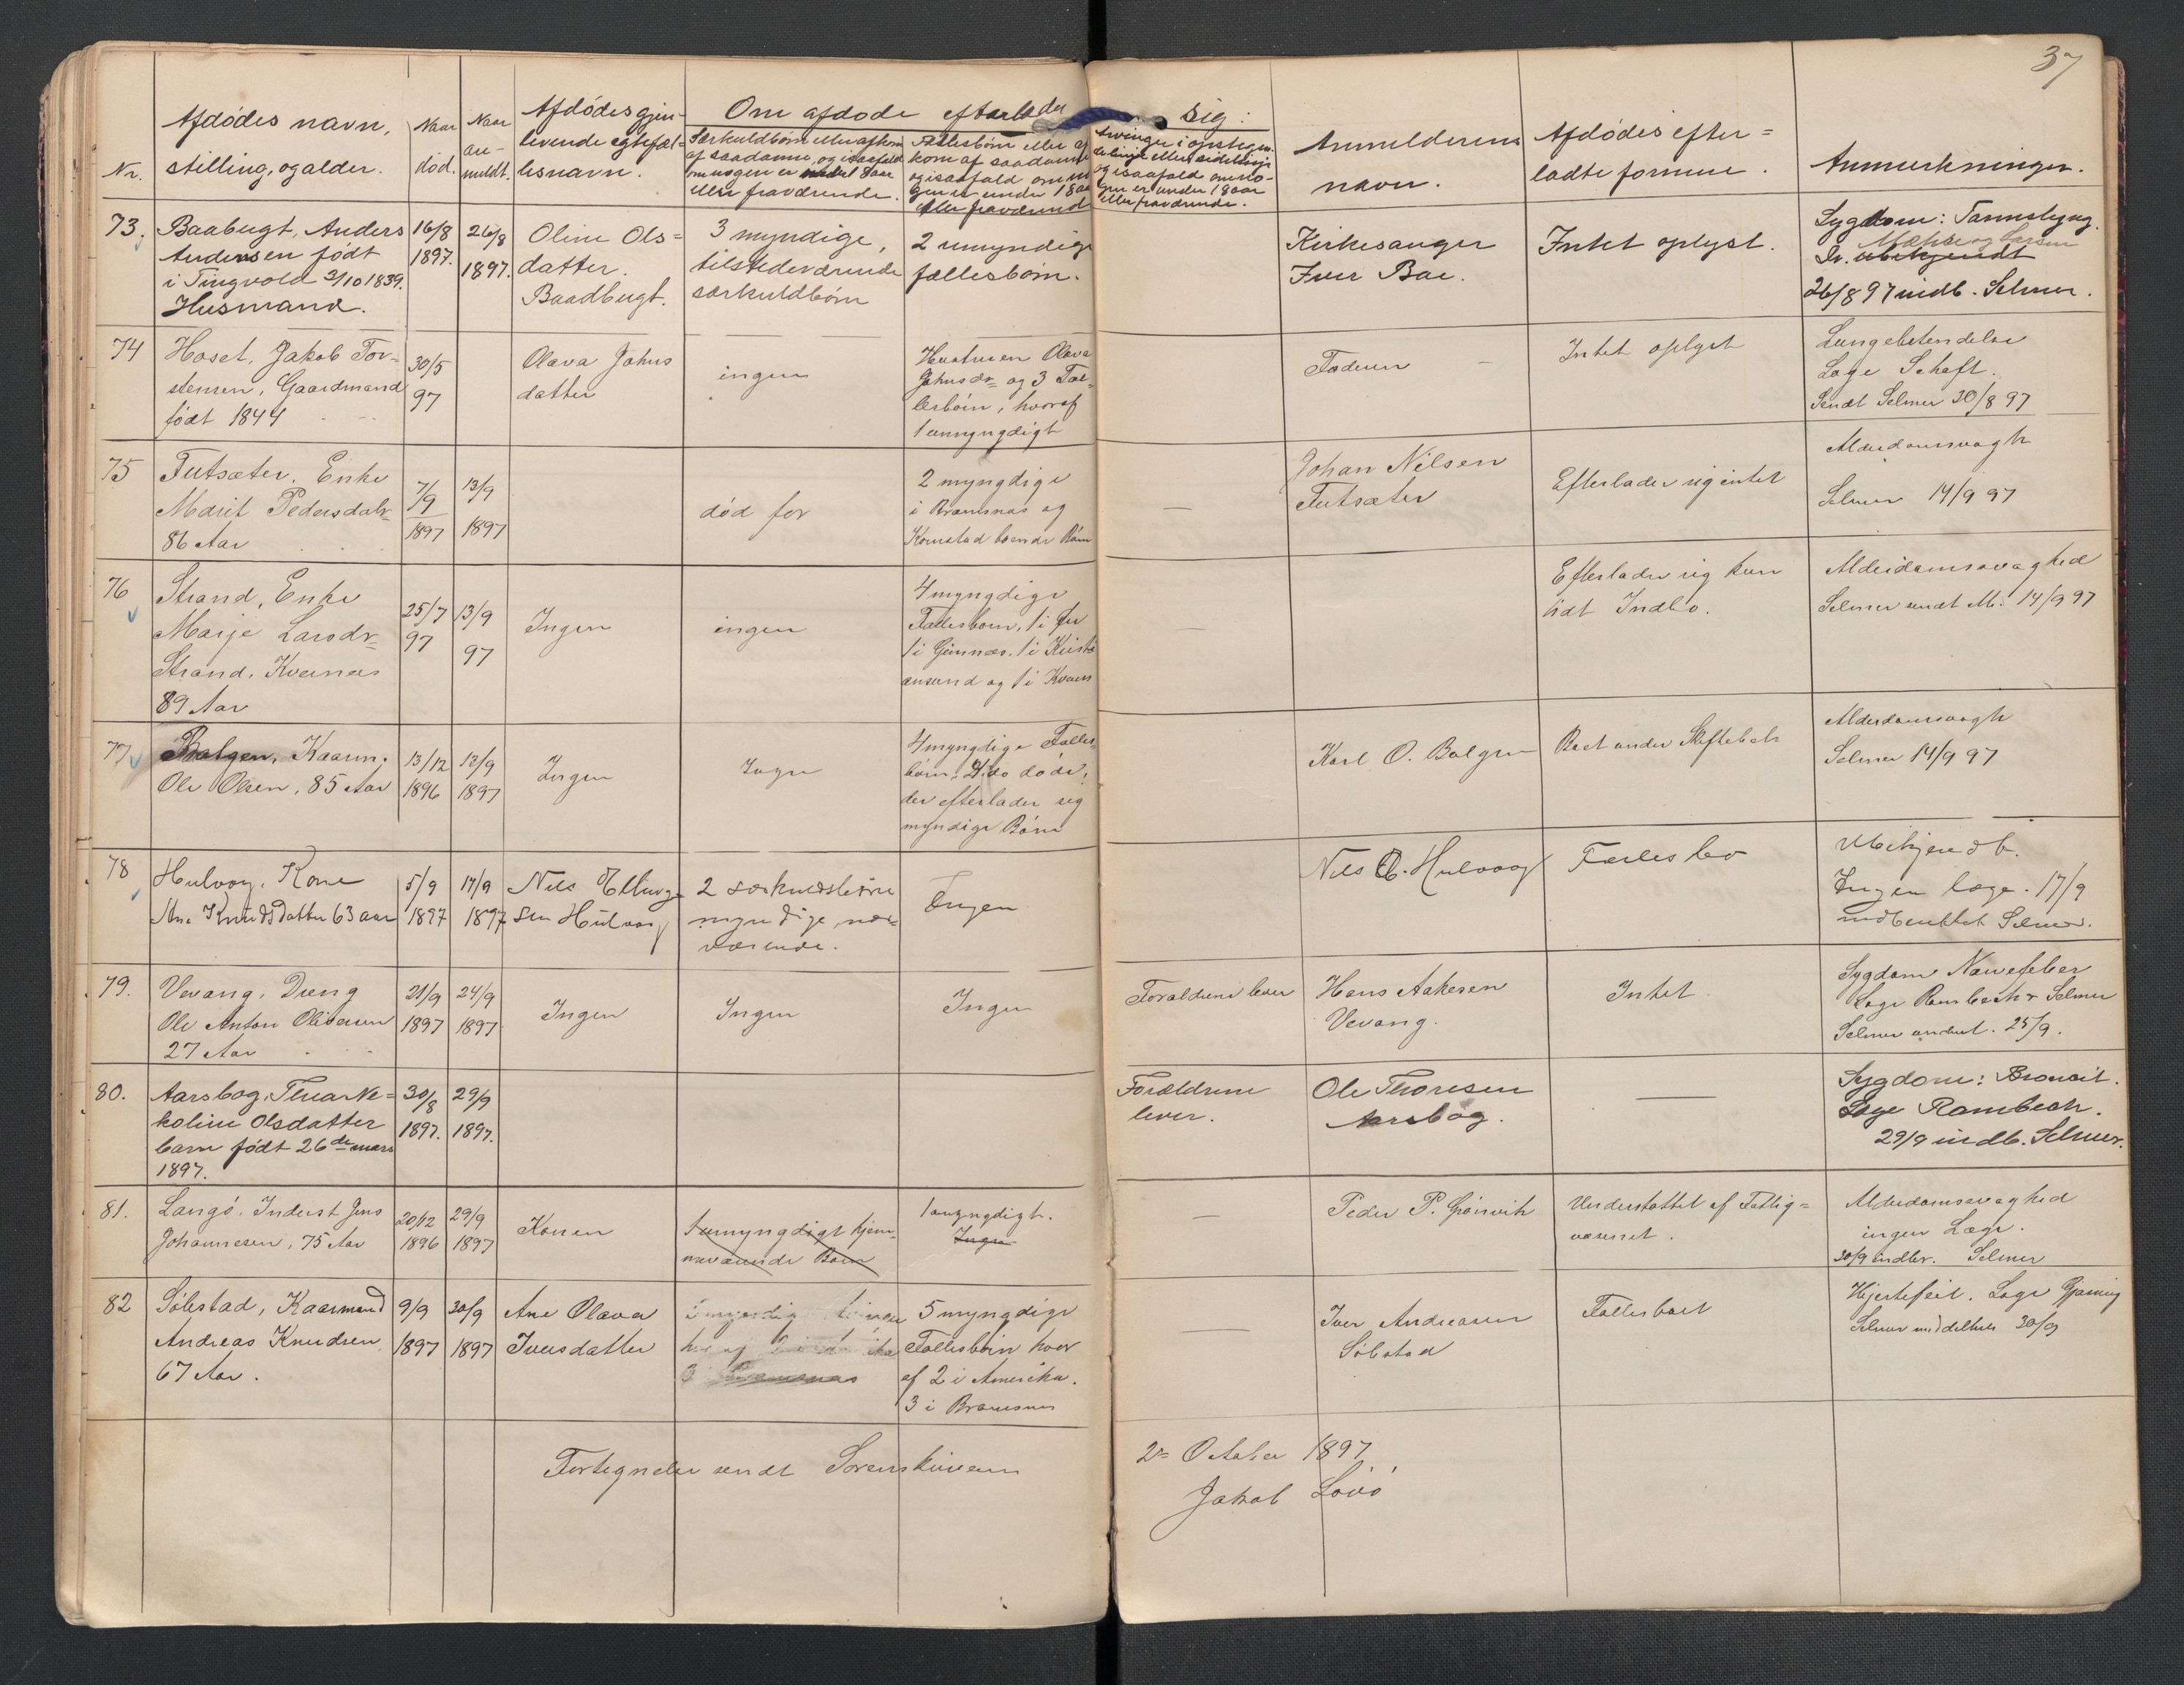 37
Nr.
Afdödes navn,
stilling, og alder.
Naar
död.
Naar
an-
meldt.
Afdödes gjen-
levende egtefæl-
lesnavn.
Om afdöde efterlader
sig:
Særkuldbörn eller afkom
af saadanne, og isaafald
om nogen er under 18 aar
eller fraværende.
Fællesbörn eller af
kom af saadanne
og isaafald om no
gen er under 18 aar
eller fraværende
Arvinger i opstigen
de linje eller sidelinje
og isaafald om no-
gen er under 18 aar
eller fraværende.
Anmelderens
navn.
Afdödes efter=
ladte formue.
Anmerkninger.
73.
Baabugt, Anders
Andersen født
i Tingvold 2/10 1839.
Husmand.
16/8
1897.
26/8
1897.
Oline Ols=
datter.
Baadbugt.
3 myndige,
tilstedeværende
særkuldbörn
2 umyndige
fællesbörn.
Kirkesanger
Iver Bae.
Intet oplyst.
Sygdom:
Dr. ubekjendt
26/8 97 indb. Selmer.
74
Hoset, Jakob Tor=
stensen, Gaardmand
født 1844
30/5
97
Olava Johns
datter
ingen
Hustruen Olava
Johnsdr og 3 Fæl=
lesbörn, hvoraf
1 umyngdigt
Faderen
Intet oplyst
Lungebetendelse
Læge Schaft.
Sendt Selmer 30/8 97
75
Futsæter, Enke
Marit Pedersdatr
86 Aar
7/9
1897
13/9
1897
död för
2 myngdige
i Bræmsnæs og
Kornstad boende Börn
—
Johan Nilsen
Futsæter
Efterlader sig intet
Alderdomsvagh
Selmer 14/9 97
76
Strand, Enke
Marje Larsdr
Strand, Kvernes
89 Aar
25/7
97
13/9
97
Ingen
ingen
4 myngdige
Fællesbörn, 1 i
1 i Gimnæs, 1 i Kristi
ansund og 1 i Kvern
—
Efterlader sig kun
lidt Indbo.
Alderdomsvaghed
Selmer sendt M. 14/9 97
77
Bolgen, Kaarm.
Ole Olsen, 85 Aar
13/12
1896
13/9
1897
Ingen
Ingen
4 myngdige Fælles=
börn, 2 do döde,
der efterlader sig
myndige Börn
Karl O. Bolgen
Boet under Skiftebeh
Alderdomsvagh
Selmer 14/9 97
78
Hulvog, Kone
Ane Knudsdatter 63 aar
5/9
1897
17/9
1897
Nils Ellings
sen Hulvog
2 særkuldsbörn
myndige, nær=
værende.
Ingen
Nils E. Hulvaag
Fælles bo
Ubekjendt.
Ingen læge. 17/9
indberettet Selmer.
79.
Vevang, Dreng
Ole Anton Oliversen
27 Aar
21/9
1897
24/9
1897
Ingen
Ingen
Ingen
Forældrene lever
Hans Aakesen
Vevang.
Intet
Sygdom Nervefeber
Læge Rambech & Selmer
Selmer anmeldt. 25/9.
80.
Aarsbog, Thea Ni=
koline Olsdatter
barn født 26de mars
1897.
30/8
1897.
29/9
1897.
Forældrene
lever.
Ole Thoresen
Aarsbog.
—
Sygdom: Broncit.
Læge Rambech.
29/9 indb. Selmer.
81.
Langö, Inderst Jens
Johannesen, 75 Aar
20/12
1896
29/9
1897
Konen
1 umyngdigt hjem=
meværende Barn
1 umyngdigt.
Ingen
—
Peder P. Grönvik
Understöttet af Fattig=
væsenet.
Alderdomsvaghed
ingen Læge.
30/9 indber. Selmer
82
Sölestad, Kaarmand
Andreas Knudsen
67 Aar.
9/9
1897
30/9
1897
Ane Olava
Iversdatter
5 myngdige
Fællesbörn hvor
af 2 i Amerika.
3 i Bræmsnæs
—
Iver Andreasen
Sölestad
Fællesboet
Hjertefeil. Læge
Selmer meddeltes 30/9
Fortegnelse sendt Sorenskriveren
2den October 1897.
Jakob Lövö